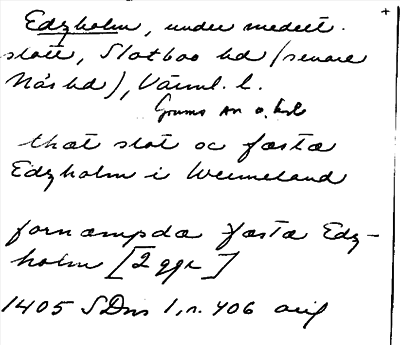 +
Edzholm, under medelt.
slott, Slotboo hd (senare
Näs hd), Värml. l.
Grums sn o. hd
that slot oc fästa
Edzholm i Wermeland
fornempda fästa Edz-
holm [2 ggr]
1405 SDns 1, n. 406 orig